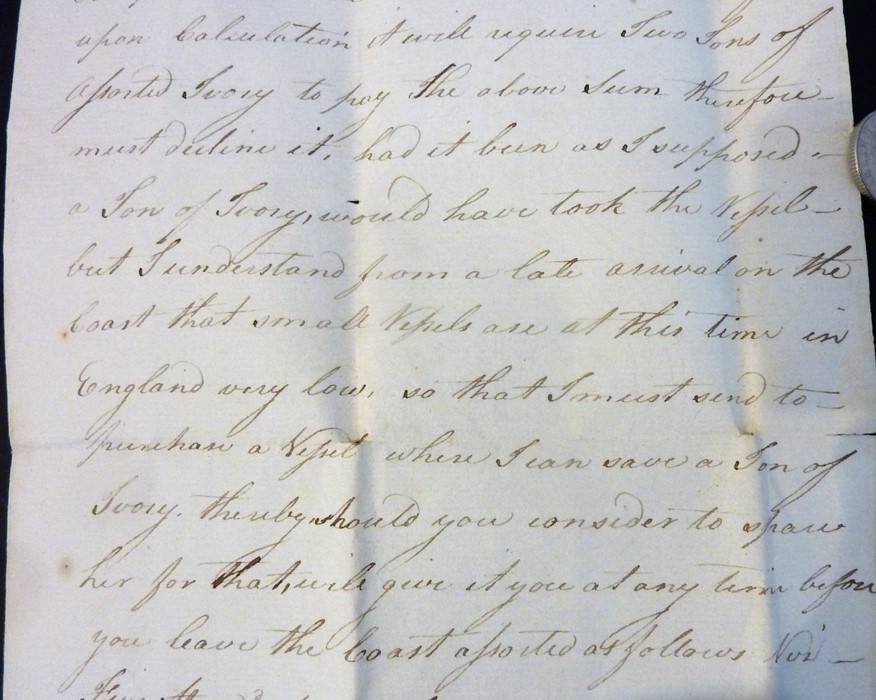 upon Calculation it will require Two Tons of
assorted Ivory to pay the above Sum therefore
must decline it, had it been as I supposed -
a Ton of Ivory, would have took the Vessel -
but I understand from a late arrival on the
Coast that small Vessels are at this time in
England very low, so that I must send to -
purchase a Vessel where I can save a Ton of
Ivory. thereby should you consider to spare
her for that, will give it you at any time before
you leave the Coast assorted as follows Viz -